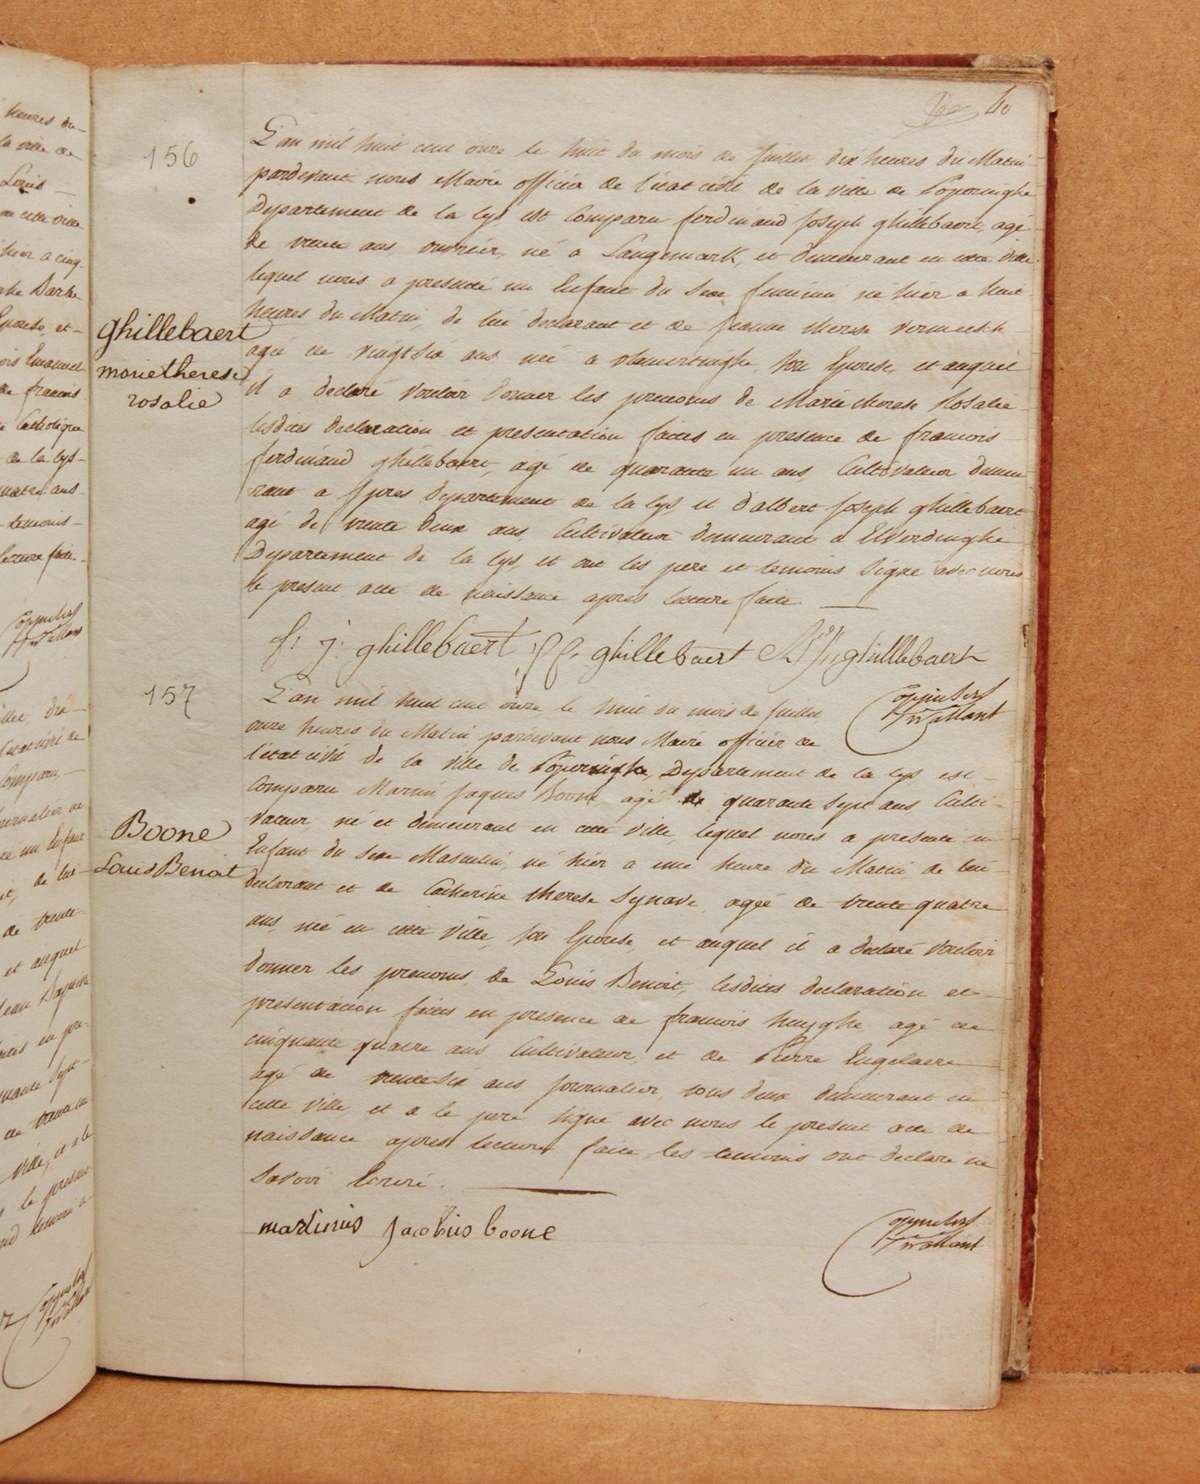 40
156
L'an mil huit cent onze le huit du mois de Juillet dix heures du Matin
pardevant nous Maire officier de l'état civil de la ville de Poperinghe
Departement de la Lys est Comparu ferdinand Joseph ghillebaert, agé
de trente ans, ouvrier, né a Langemarck, et demeurant en cette ville
lequel nous a presenté un Enfant du Sexe feminin né hier a huit
heures du Matin, de lui declarant et de therese
agée de vingt six ans née a vlamertinghe, son Epouse, et auquel
il a declaré vouloir donner les prenoms de Marie therese Rosalie
lesdites declaration et presentation faites en presence de francois
ferdinand ghillebaert, agé de quarante un ans, Cultivateur demeu
rant a Ypres Departement de la Lys et d'albert Joseph ghillebaert
agé de trente deux ans, Cultivateur demeurant a Elverdinghe
Departement de la Lys, et ont les pere et temoins Signé avec nous
le present acte de naissance apres lecture faite.
ghillebaert
marie therese
rosalie
f. j. ghillebaert f f. ghillebaert ghillebaert
157
L'an mil huit cent onze le huit du mois de Juillet
onze heures du Matin pardevant nous Maire officier de
l'état civil de la ville de Poperinghe, Departement de la Lys est
Comparu Martin Jaques Boone agé de quarante sept ans Culti-
vateur né et demeurant en cette ville, lequel nous a presenté un
Enfant du Sexe Masculin, né hier a une heure du Matin de lui
declarant et de Catherine therese Synave, agée de trente quatre
ans, née en cette ville, son Epouse, et auquel il a declaré vouloir
donner les prenoms de Louis Benoit, lesdites declaration et
presentation faites en presence de francois huyghe agé de
cinquante quatre ans Cultivateur, et de Pierre Engelaere
agé de trente six ans journalier, tous deux demeurant en
cette ville et a le pere signé avec nous le present acte de
naissance apres lecture faite, les temoins ont declaré ne
Savoir Ecrire.
Boone
Louis Benoit
martinus Jacobus boone